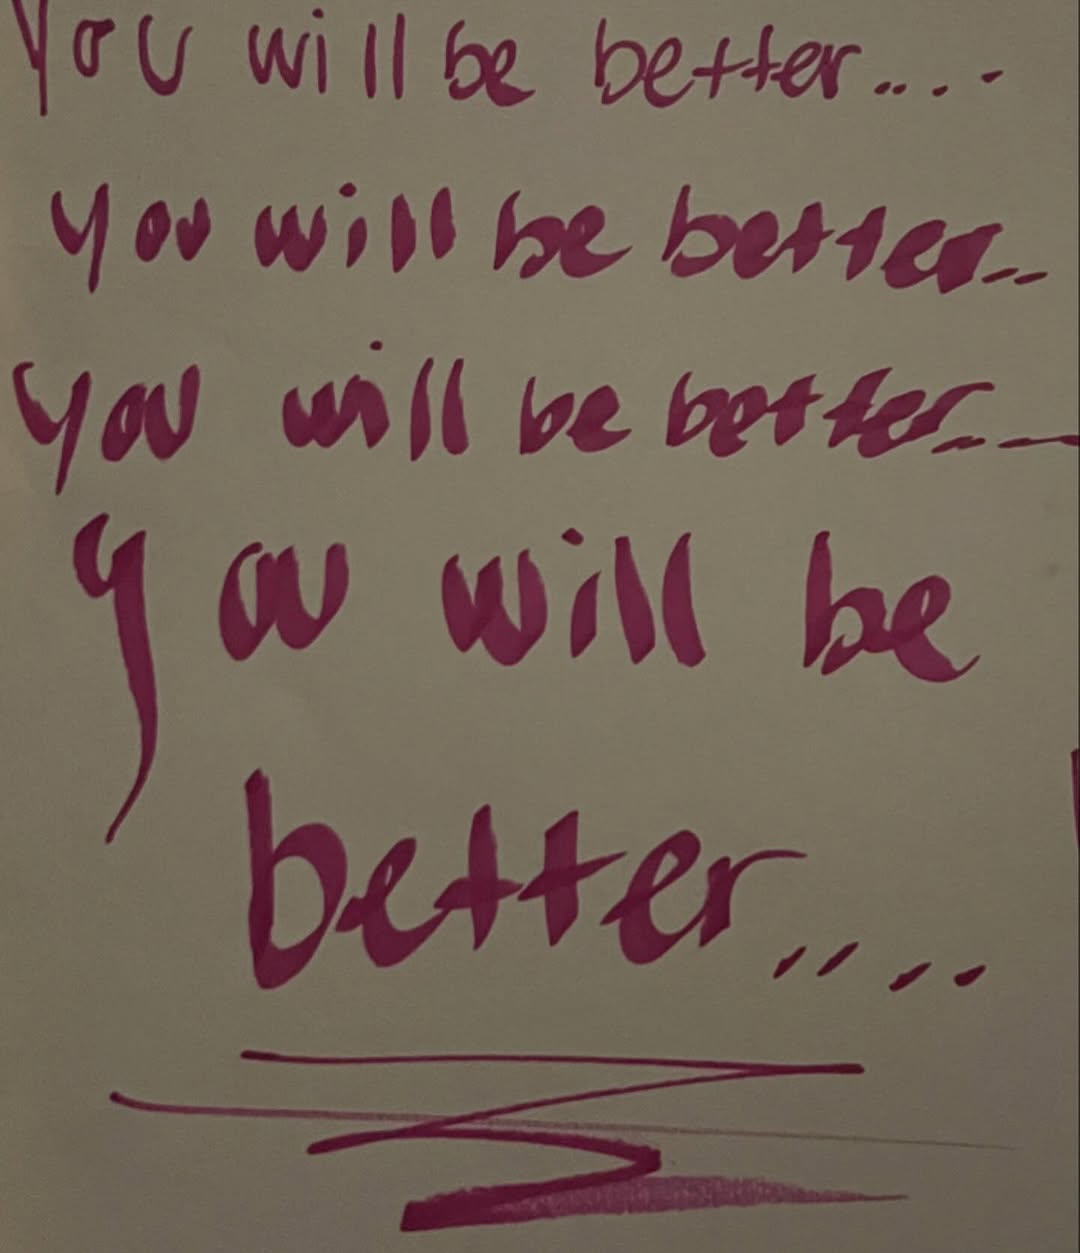 You will be better....
you will be better...
you will be better...
you will be
better....